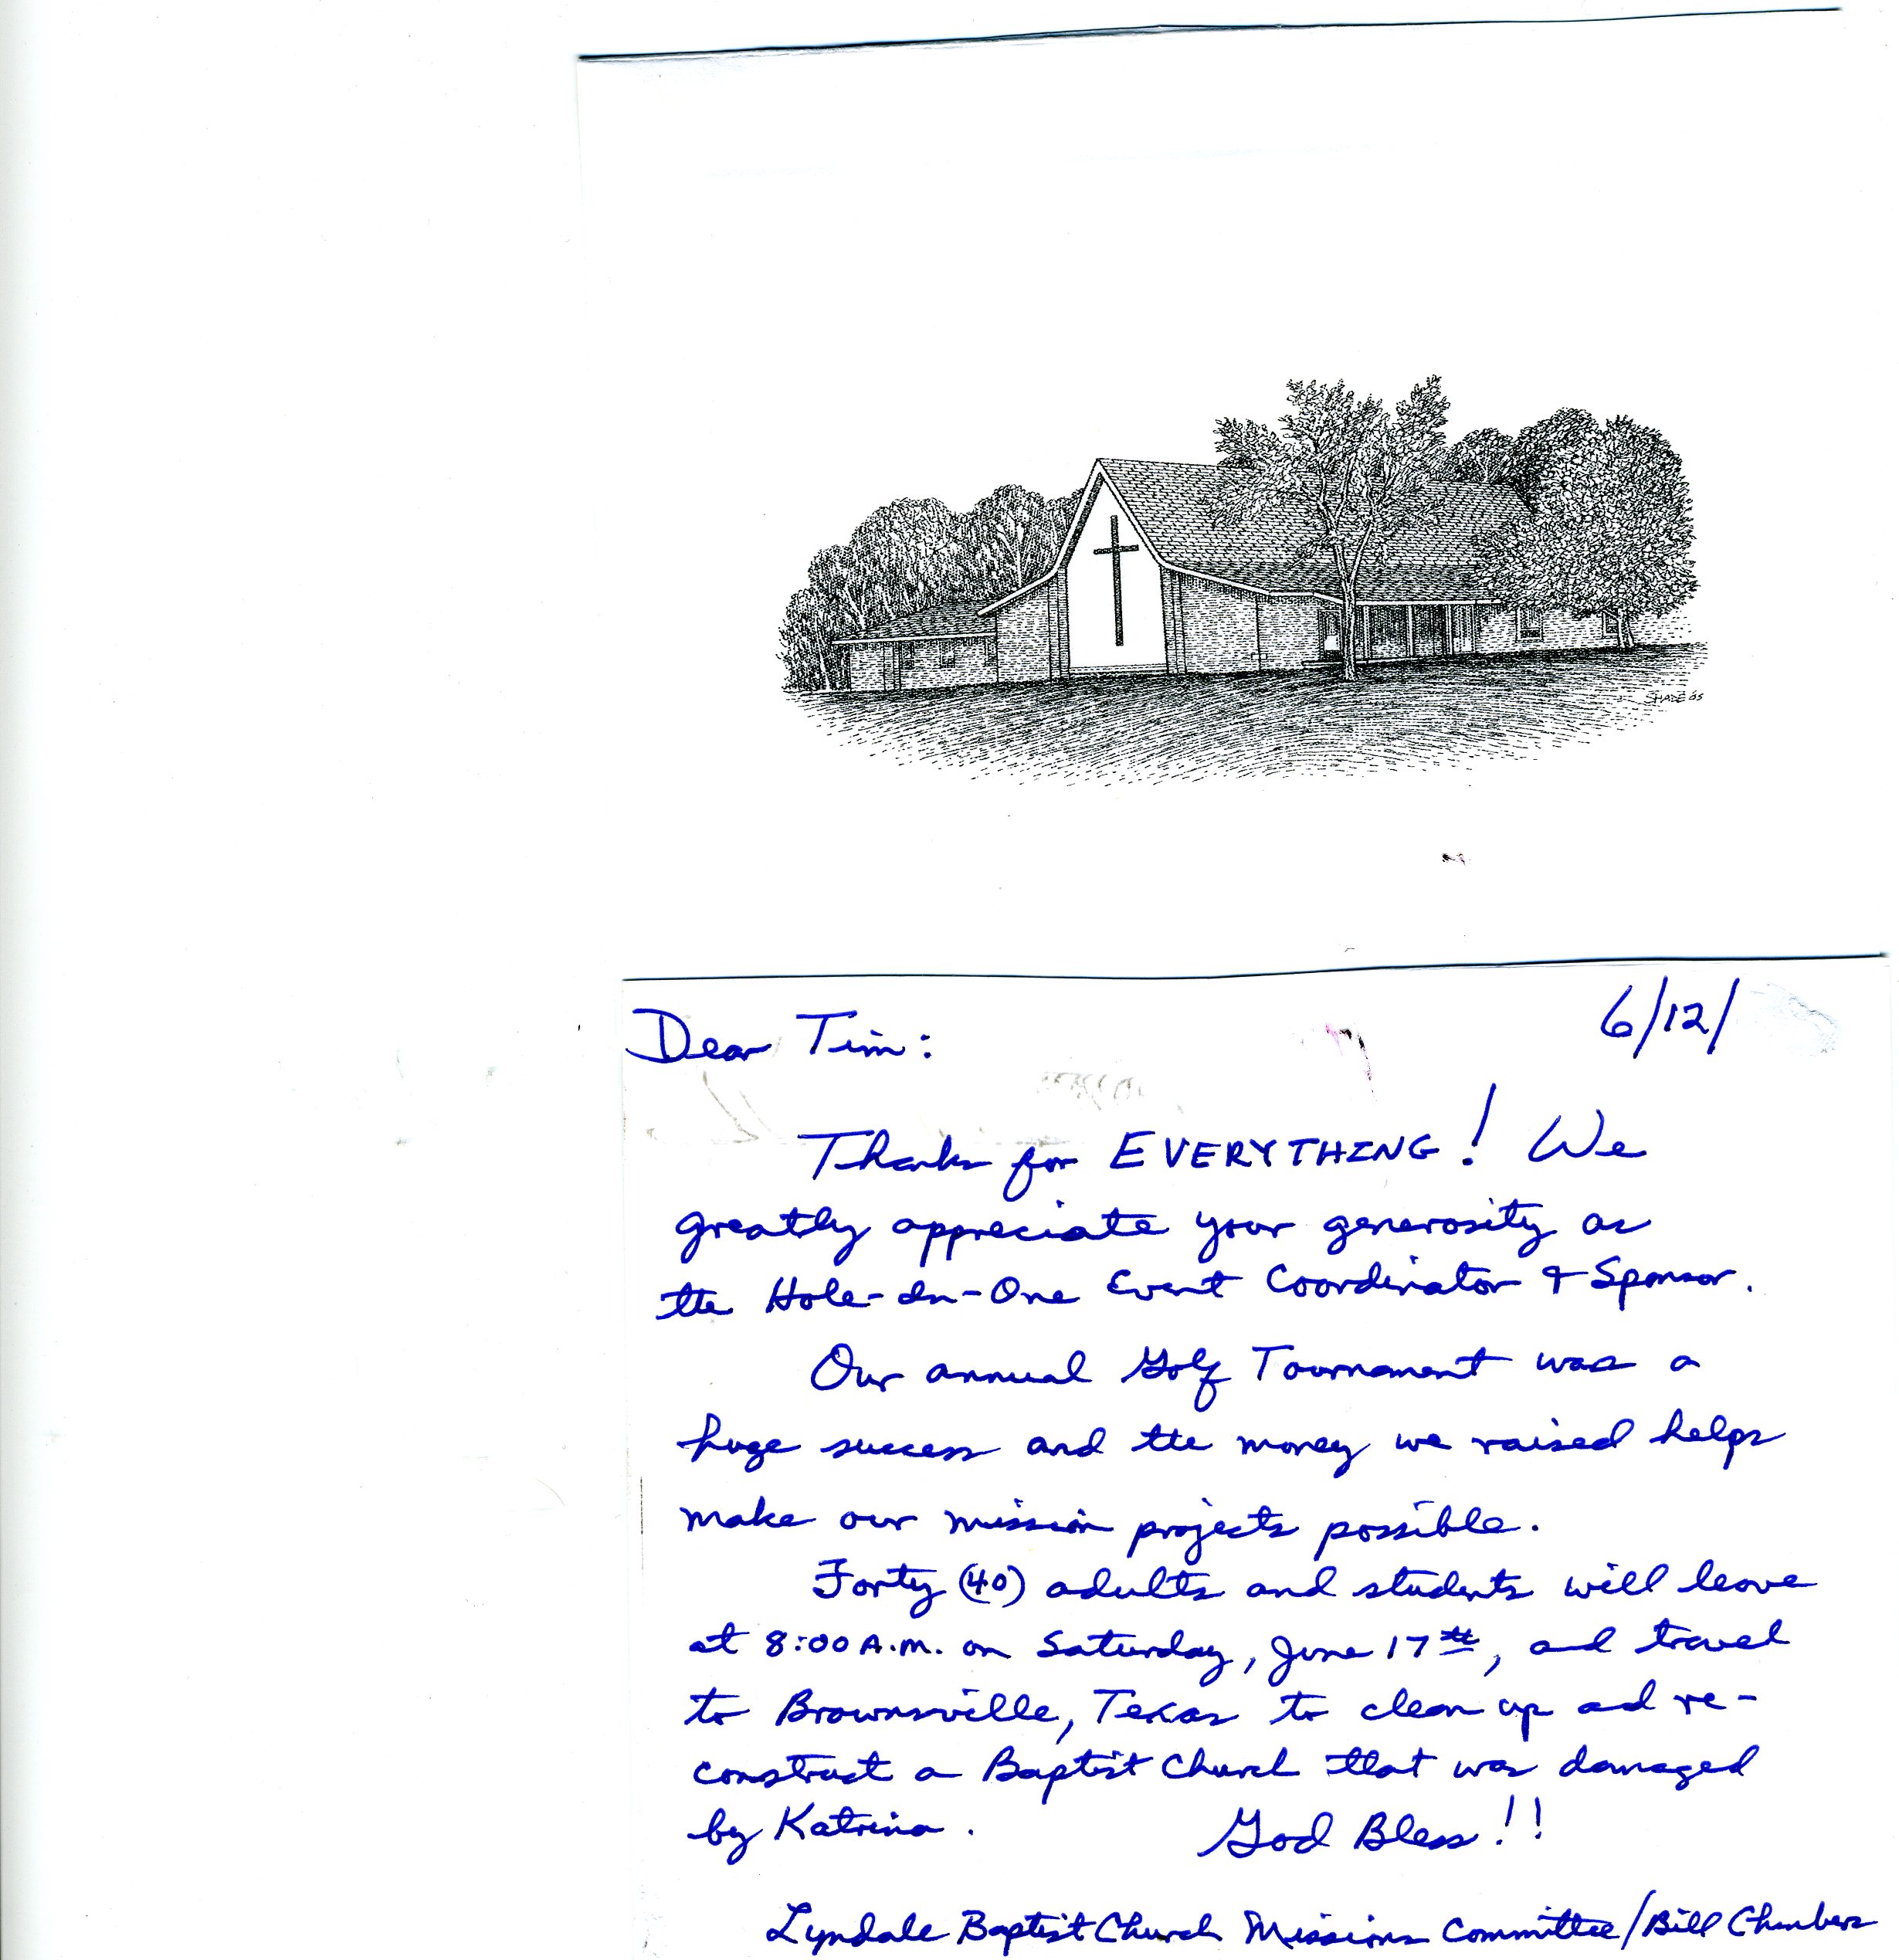 SHADE '05
Dear Tim:
6/12/
Thanks for EVERYTHING! We
greatly appreciate your generosity as
the Hole-In-One Event Coordinator & Sponsor.
Our annual Golf Tournament was a
huge success and the money we raised helps
make our mission projects possible.
Forty (40) adults and students will leave
at 8:00 A.M. on Saturday, June 17th, and travel
to Brownsville, Texas to clean up and re-
construct a Baptist Church that was damaged
by Katrina. God Bless!!
Lyndale Baptist Church Missions Committee/Bill Chambers